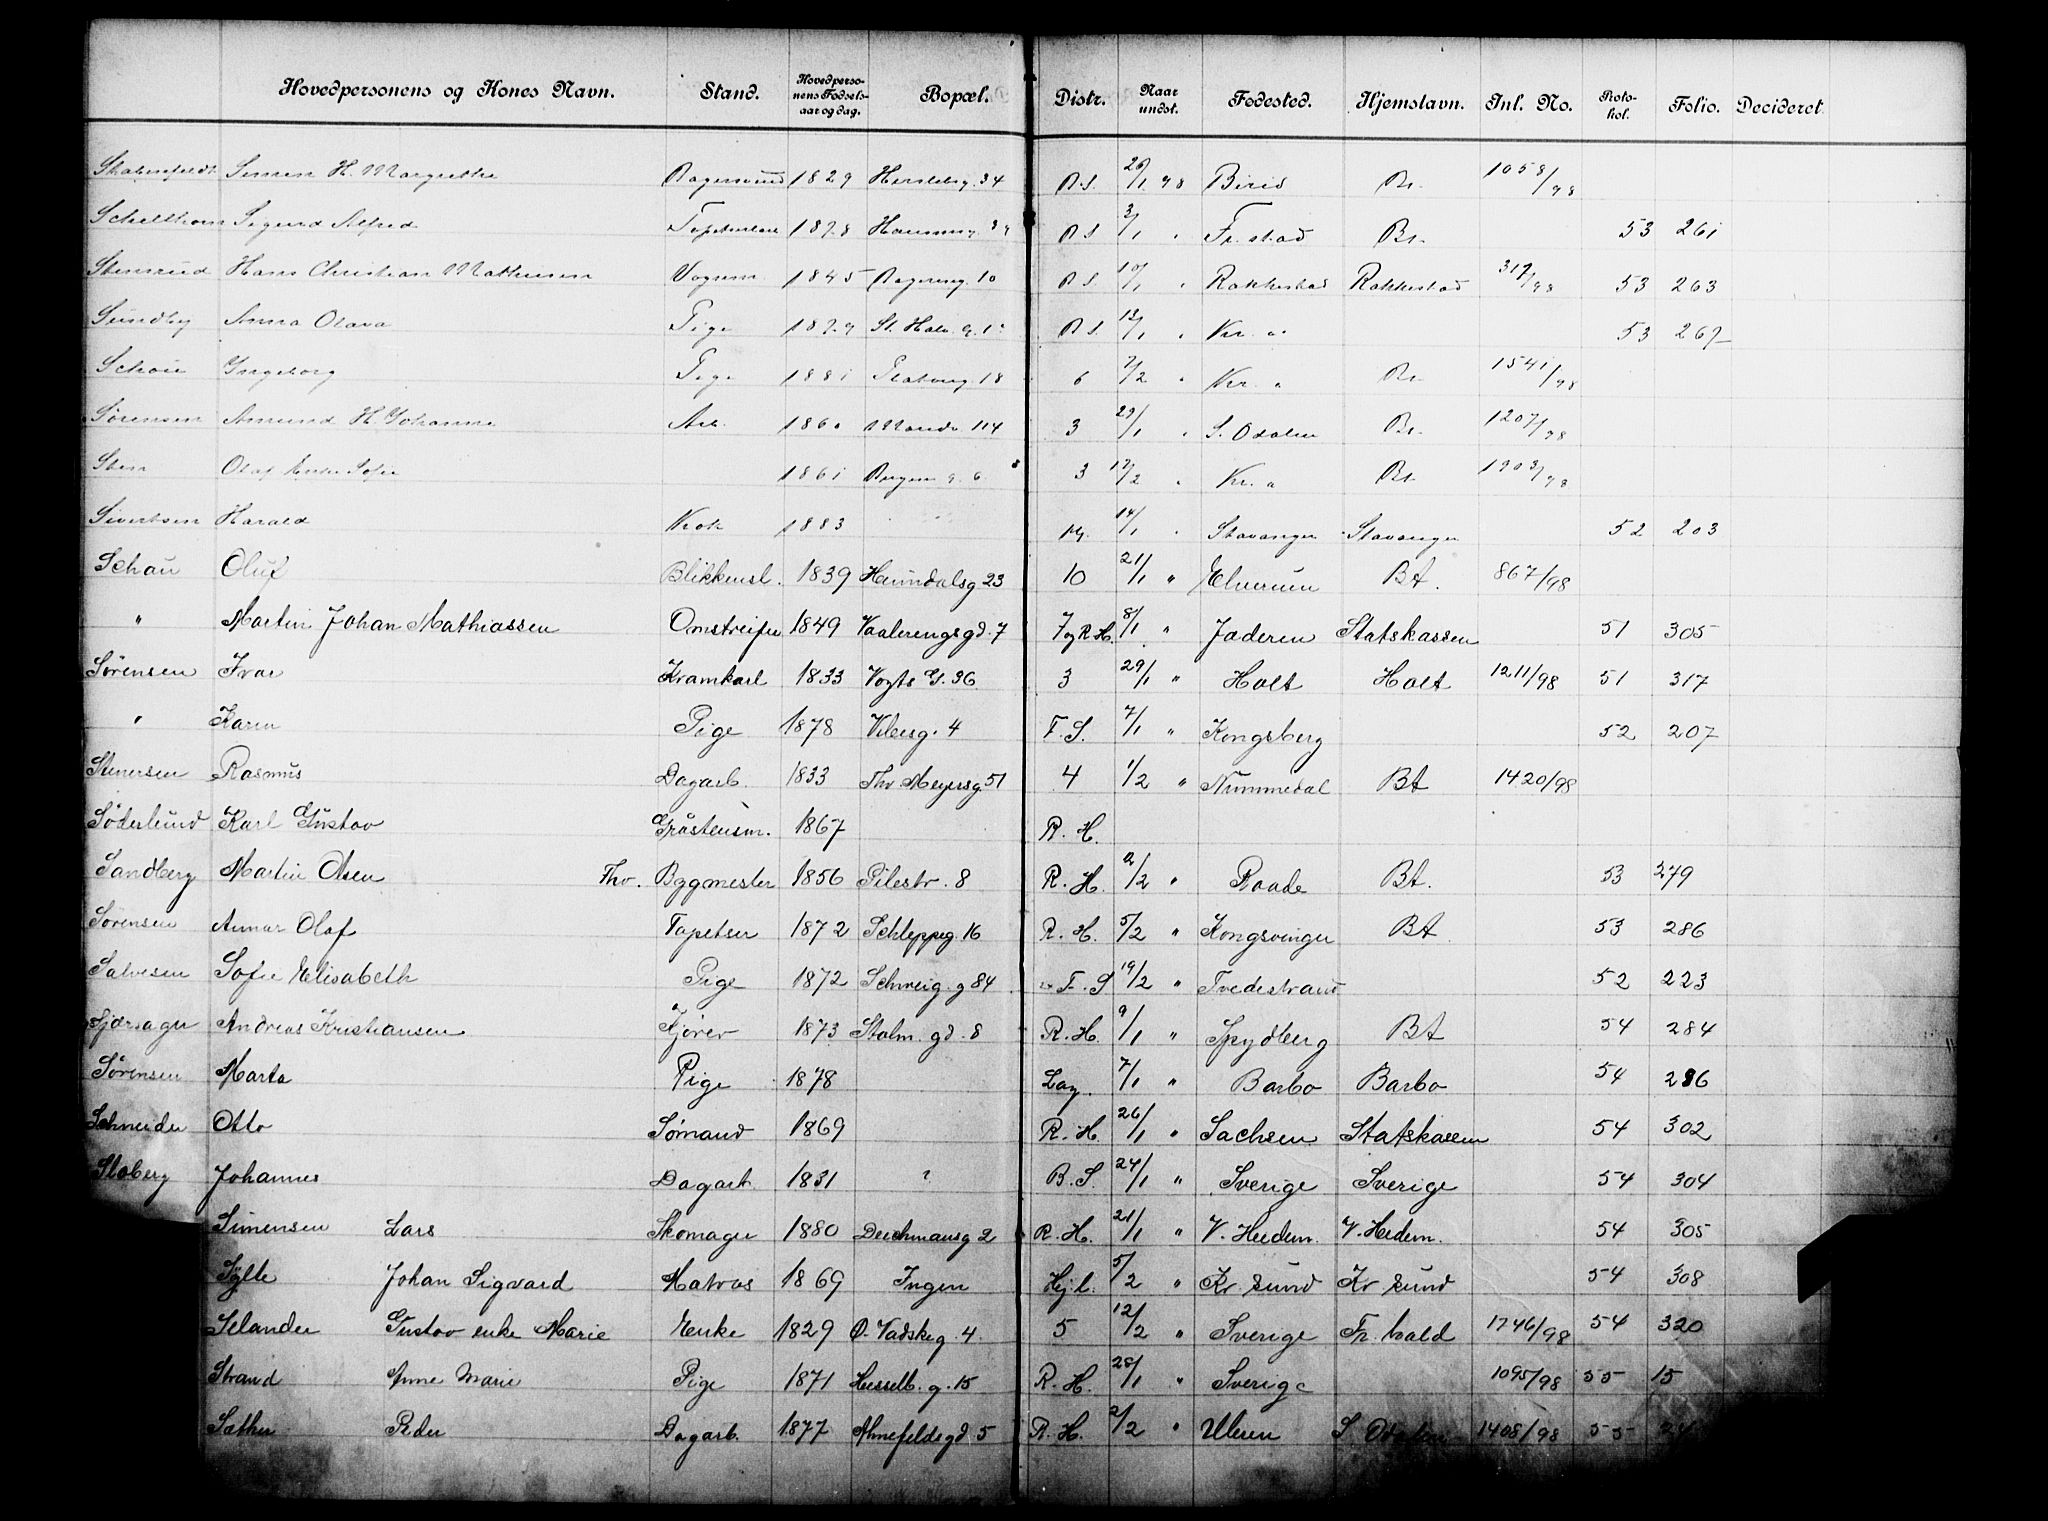 Hovedpersonens og Kones Navn. Stand. Hovedperso-nens Fødsels-aar og dag. Bopæl. Distr. Naar undst. Fødested. Hjemstavn. Inl. No. Proto-kol. Folio. Decideret
Simen H. Margrethe 1829 34 B.S. 26/1 98 Birid Bt. 1058/98
Sigurd Alfred B S 3/1 " Fr. stad Bt. 53 261
Stensrud Hans Christian Mathiesen Vognm. 1845 10 B S 10/1 " Rakkestad Rakkestad 319/98 53 263
Sundby Anna Olava Pige 1879 St. Halv. g. B S 13/1 " Kr. a 53 267
Schou Ingeborg Pige 1881 18 6 7/2 " Kr. a Bt. 1541/98
Sørensen Amund H. Johanne Arb. 1860 114 3 29/1 " S. Odalen Bt. 1207/98
Sten Olaf Enke Sofie 1861 Bergens g. 6 3 17/2 " Kr. a Bt. 1903/98
Sivertsen Harald Kok 1883 14/1 " Stavanger Stavanger 52 203
Schau Oluf Blikkensl. 1839 Heimdalsg 23 10 21/1 " Elverum Bt. 867/98
" Martin Johan Mathiassen Omstreifer 1849 Vaalerengsgd. 7 7 og R H. 8/1 " Jæderen Statskassen 51 305
Sørensen Ivar Kramkarl 1833 Vogts G. 36 3 29/1 " Holt Holt 1211/98 51 317
" Karen Pige 1878 Vibesg. 4 F. S. 7/1 " Kongsberg 52 207
Stenersen Rasmus Dagarb. 1833 Thv Meyersg 51 4 1/2 " Nummedal Bt 1420/98
Søderlund Karl Gustav Gråstensm. 1867 R. H.
Sandberg Martin Olsen Thv. Bygmester 1856 Pilestr. 8 R. H. 2/2 " Raade Bt. 53 279
Sørensen Annar Olaf Tapetser 1872 Schleppeg. 16 R. H. 5/2 " Kongsvinger Bt 53 286
Salvesen Sofie Elisabeth Pige 1872 Schweig. g 84 F. S 19/2 " Tvedestrand 52 223
Andreas Kristiansen Kjører 1873 Stalm. gd. 8 R. H. 9/1 " Spydberg Bt 54 284
Sørensen Marta Pige 1878 Lag. 7/1 " Barbo Barbo 54 286
Schneider Otto Sømand 1869 R. H. 26/1 " Sachsen Statskassen 54 302
Stoberg Johannes Dagarb. 1831 ? B. S. 24/1 " Sverige Sverige 54 304
Simensen Lars Skomager 1880 Deichmansg 2 R. H. 21/1 " V. Hedem. V. Hedem. 54 305
Sylte Johan Sigvard Matros 1869 Ingen Hjl. 5/2 " Kr sund Kr sund 54 308
Selander Gustav enke Marie Enke 1829 O. Vadskeg. 4. 5 12/2 " Sverige Fr. hald 1746/98 54 320
Strand Anne Marie Pige 1871 Hesselb. g. 15 R. H. 28/1 " Sverige 1095/98 55 15
Sæther Peder Dagarb. 1877 Ahnefeldsgd 5 R. H. 2/2 " Ulleren S Odalen 1408/98 55